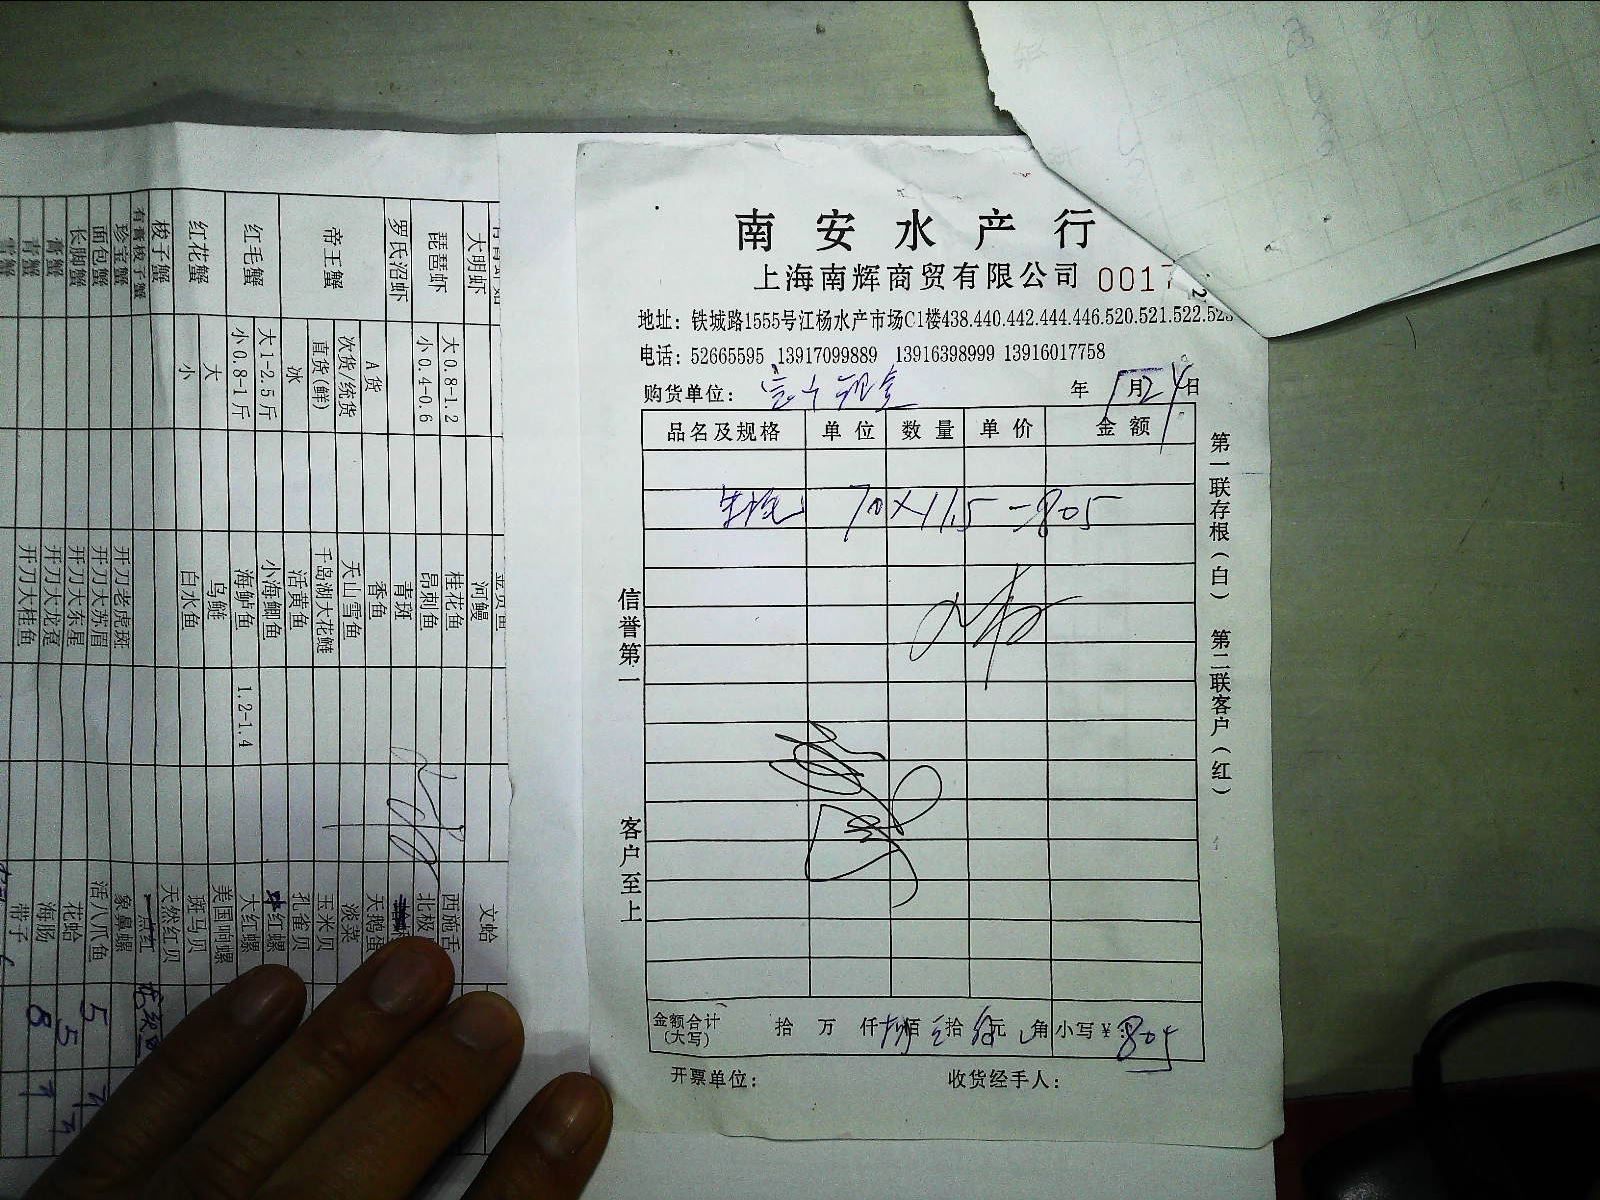 南安水产行
上海南辉商贸有限公司 0017
地址：铁城路1555号江杨水产市场C1楼438.440.442.444.446.520.521.522.523
电话：52665595 13917099889 13916398999 13916017758
购货单位： 年 1月24日
品名及规格 单位 数量 单价 金额
70×11.5=805
信誉第一 客户至上
第一联存根（白） 第二联客户（红）
金额合计（大写） 拾 万 仟 捌佰 零拾 伍元 角 小写￥：805
开票单位： 收货经手人：
大明虾
琵琶虾 大0.8-1.2 小0.4-0.6
罗氏沼虾
帝王蟹 A货 次货/统货 直货(鲜) 冰
红毛蟹 大1-2.5斤 小0.8-1斤
红花蟹 大 小
梭子蟹
有膏梭子蟹
珍宝蟹
面包蟹
长脚蟹
膏蟹
青蟹
河鳗
桂花鱼
昂刺鱼
青斑
香鱼
天山雪鱼
千岛湖大花鲢
活黄鱼
小海鲫鱼
海鲈鱼 1.2-1.4
乌鲢
白水鱼
开刀老虎斑
开刀大苏眉
开刀大东星
开刀大龙趸
开刀大桂鱼
文蛤
西施舌
北极
天鹅蛋
淡菜
玉米贝
孔雀贝
红螺
大红螺
美国响螺
斑马贝
天然红贝
象鼻螺
活八爪鱼 5
花蛤 5
海肠 8
带子